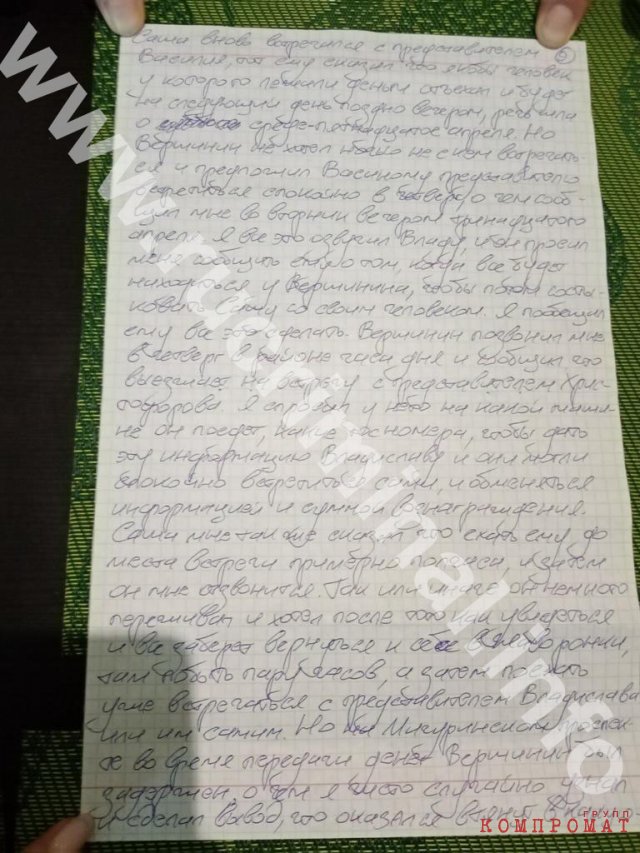 Саша вновь встречался с представителем
5
Василия, тот ему сказал что якобы человек
у которого лежали деньги отъехал и будет
на следующий день поздно вечером, речь шла
о среде-пятнадцатое апреля. Но
Вершинин не хотел ни с кем встречать-
ся и предложил Васиному представителю
встретиться спокойно в четверг, о чем сооб-
щил мне во вторник вечером тринадцатого
апреля. Я все это озвучил Владу, и он просил
меня сообщить ему о том, когда все будет
находиться у Вершинина, чтобы потом состы-
ковать Сашу со своим человеком. Я пообещал
ему все это сделать. Вершинин позвонил мне
в четверг в районе часа дня и сообщил что
выезжает на встречу с представителем Хрис-
тофорова. Я спросил у него на какой маши-
не он поедет, какие госномера, чтобы дать
эту информацию Владиславу и они могли
спокойно встретиться сами, и обменяться
информацией и суммой вознаграждения.
Саша мне так же сказал что ехать ему до
места встречи примерно полчаса, и затем
он мне отзвонится. Так или иначе он немного
переживал и хотел после того как увидеться
и все заберет вернуться к себе в
там побыть пару часов, а затем поехать
уже встречаться с представителем Владислава
или им самим. Но на Мичуринском проспек-
те во время передачи денег Вершинин был
задержан, о чем я чисто случайно узнал
и сделал вывод, что оказался втянут в
www.rucriminal.info
ГРУПП
КОМПРОМАТ